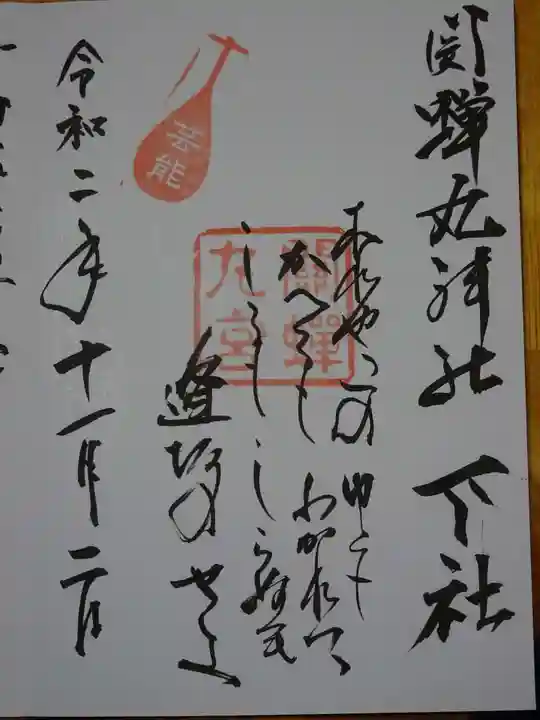 関蝉丸神社 下社
これやこの ゆくも
かへるも わかれつ
しるもしらぬも
逢坂のせき
令和二年十一月二日
芸能
關蟬
丸宮